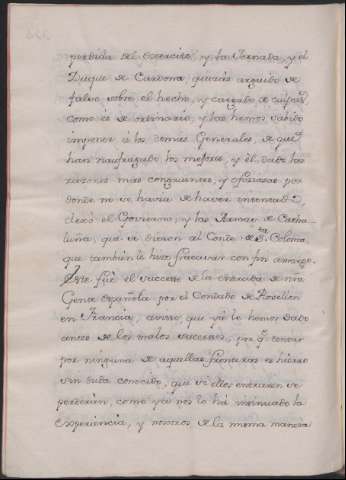 perdida del exercito, y la Jornada, y el
Duque de Cardona, quizás arguido de
falso sobre el hecho, y cargado de culpas
como es de ordinario, y las hemos sabido
imponer á los demas Generales de que
han naufragado los mejores, y él dado las
razones mas congruentes, y oficiosas por
donde no se havia de haver intentado,
dexó el Govierno, y las Armas de Cathaluña,
que se dieron al Conde de Sta Coloma,
que tambien le hizo fracasar con fin amargo.
Este fué el successo de la entrada de nra
Gente española por el Condado de Rosellon
en Francia, aviso, que ya lo hemos dado
antes de los malos sucesos, por q. entrar
por ninguna de aquellas fronteras es hierro
sin duda conocido, que si ellos entraren se
perderán, como ya nos lo há insinuado la
experiencia, y nosotros de la misma manera